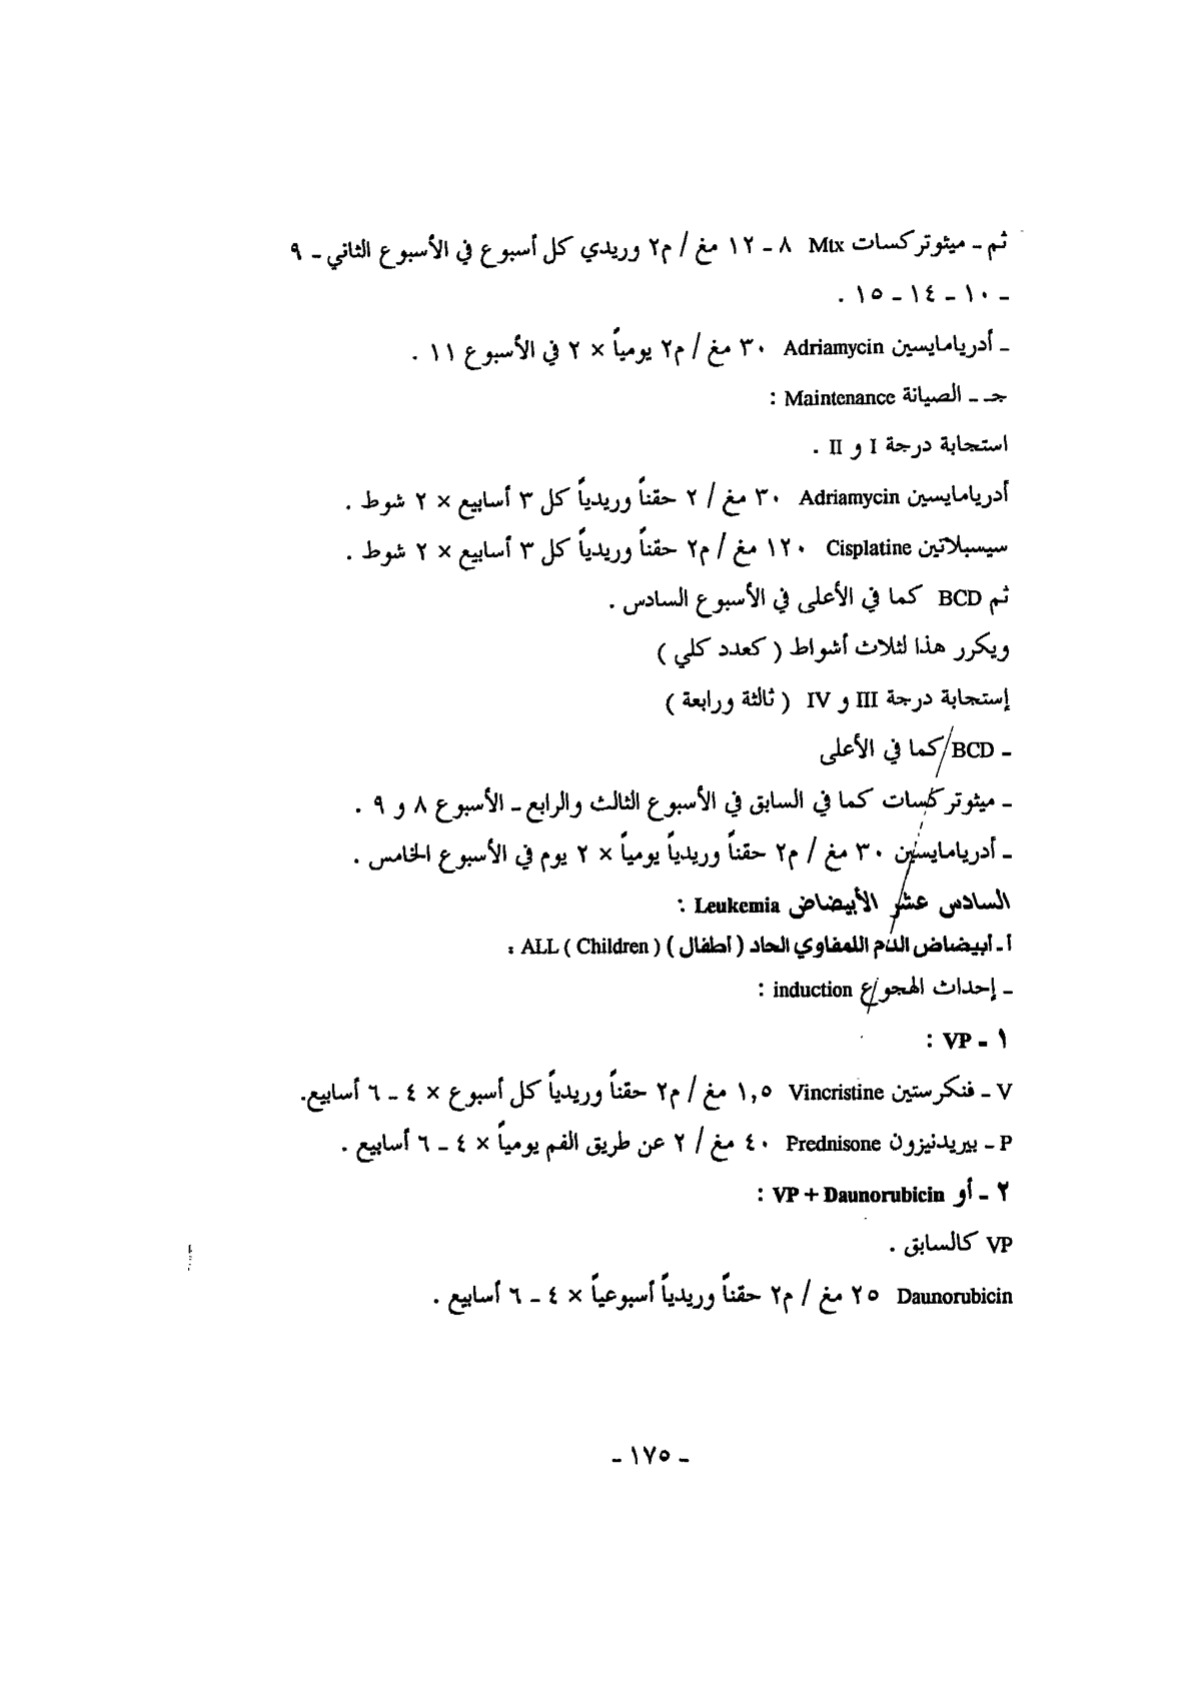 ثم ـ ميثوتركسات Mtx ٨ ـ ١٢ مغ / م٢ وريدي كل أسبوع في الأسبوع الثاني ـ ٩
ـ ١٠ ـ ١٤ ـ ١٥ .
ـ أدريامايسين Adriamycin ٣٠ مغ / م٢ يومياً × ٢ في الأسبوع ١١ .
جـ ـ الصيانة Maintenance :
استجابة درجة I و II .
أدريامايسين Adriamycin ٣٠ مغ / ٢ حقناً وريدياً كل ٣ أسابيع × ٢ شوط .
سيسبلاتين Cisplatine ١٢٠ مغ / م٢ حقناً وريدياً كل ٣ أسابيع × ٢ شوط .
ثم BCD كما في الأعلى في الأسبوع السادس .
ويكرر هذا لثلاث أشواط ( كعدد كلي )
إستجابة درجة III و IV ( ثالثة ورابعة )
ـ BCD كما في الأعلى
ـ ميثوتركسات كما في السابق في الأسبوع الثالث والرابع ـ الأسبوع ٨ و ٩ .
ـ أدريامايسين ٣٠ مغ / م٢ حقناً وريدياً يومياً × ٢ يوم في الأسبوع الخامس .
السادس عشر الأبيضاض Leukemia :
أ ـ أبيضاض الدم اللمفاوي الحاد ( أطفال ) ALL ( Children ) :
ـ إحداث الهجوع induction :
١ ـ VP :
V ـ فنكرستين Vincristine ١,٥ مغ / م٢ حقناً وريدياً كل أسبوع × ٤ ـ ٦ أسابيع.
P ـ بيريدنيزون Prednisone ٤٠ مغ / ٢ عن طريق الفم يومياً × ٤ ـ ٦ أسابيع .
٢ ـ أو VP + Daunorubicin :
VP كالسابق .
Daunorubicin ٢٥ مغ / م٢ حقناً وريدياً أسبوعياً × ٤ ـ ٦ أسابيع .
ـ ١٧٥ ـ